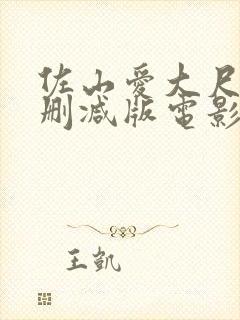 佐山愛大尺
删减版電影
王凱